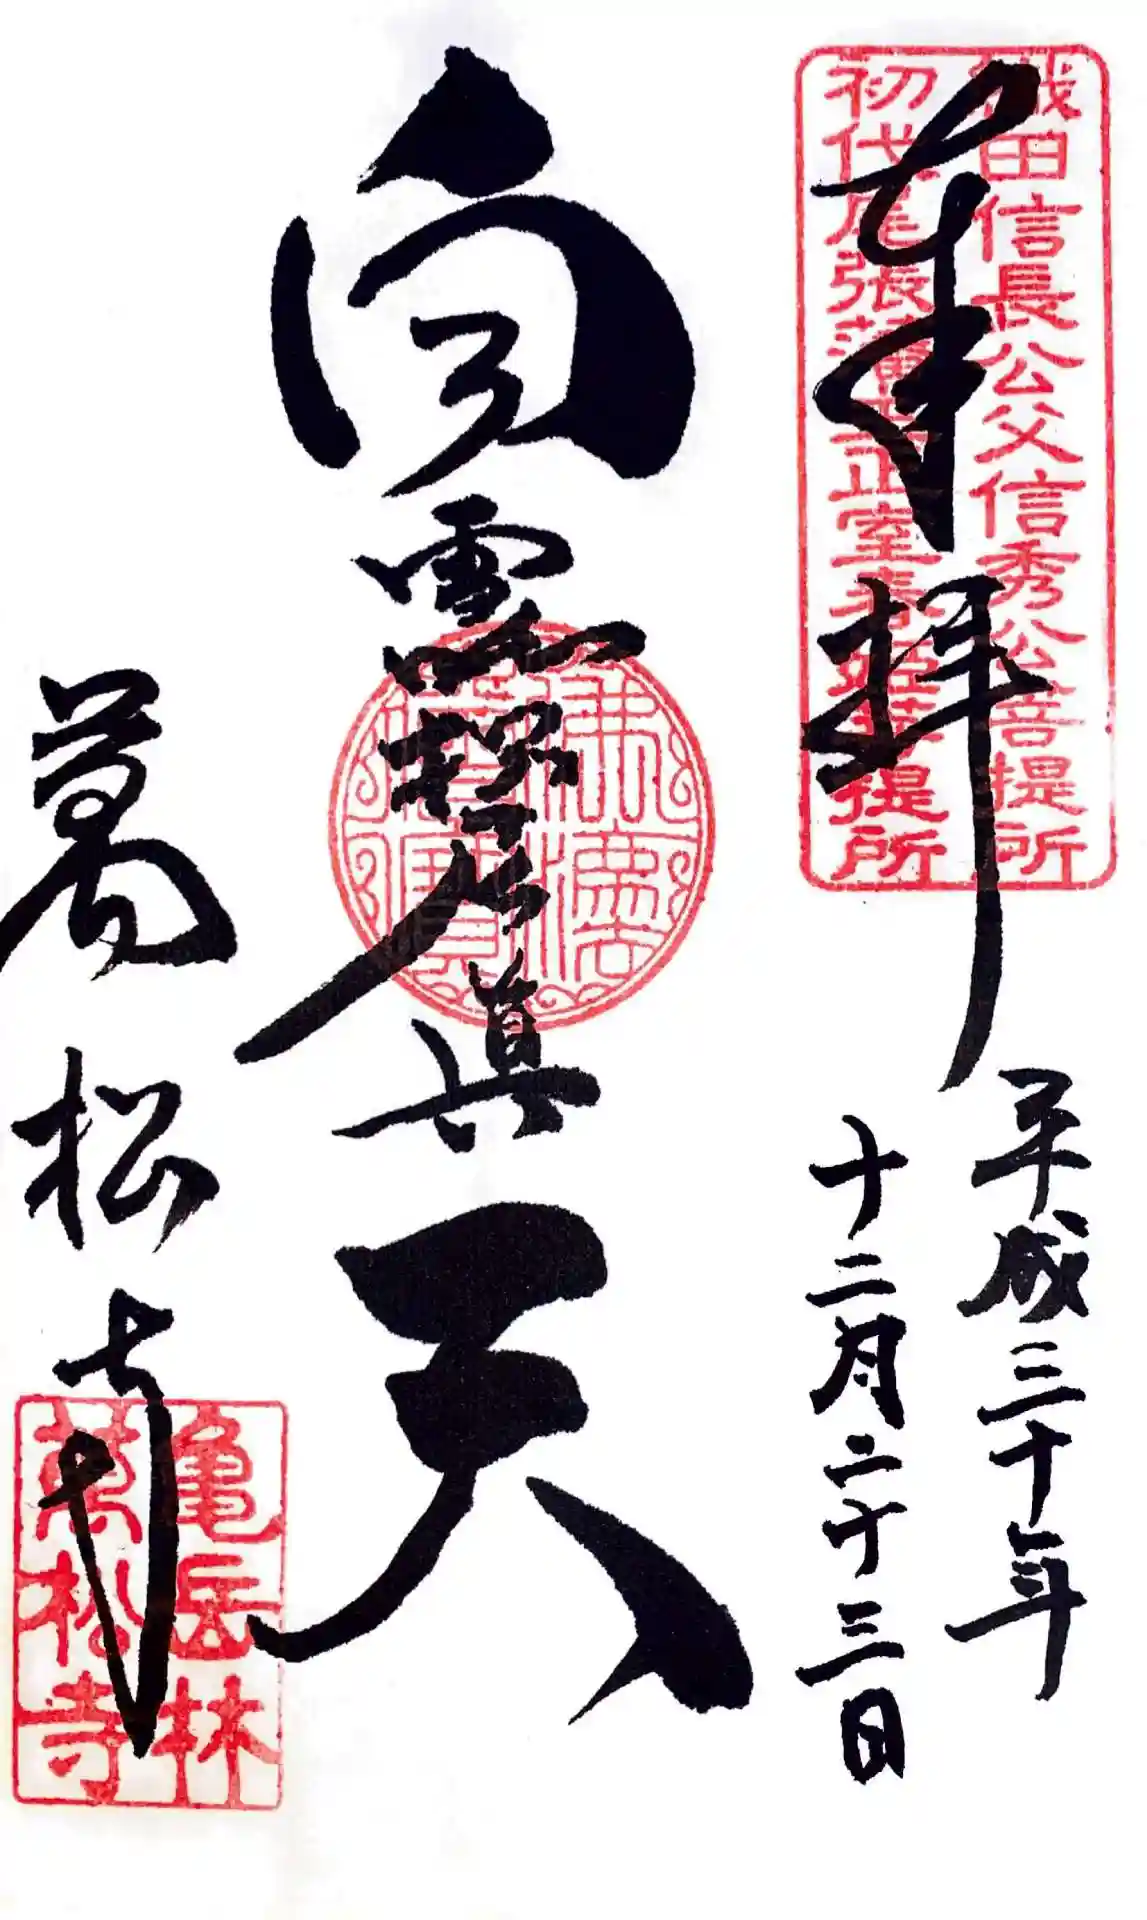 奉拝
織田信長公父信秀公菩提所
初代尾張藩主正室春姫菩提所
平成三十年
十二月二十三日
白雪稲荷真天
佛法僧寶
萬松寺
亀岳林
萬松寺